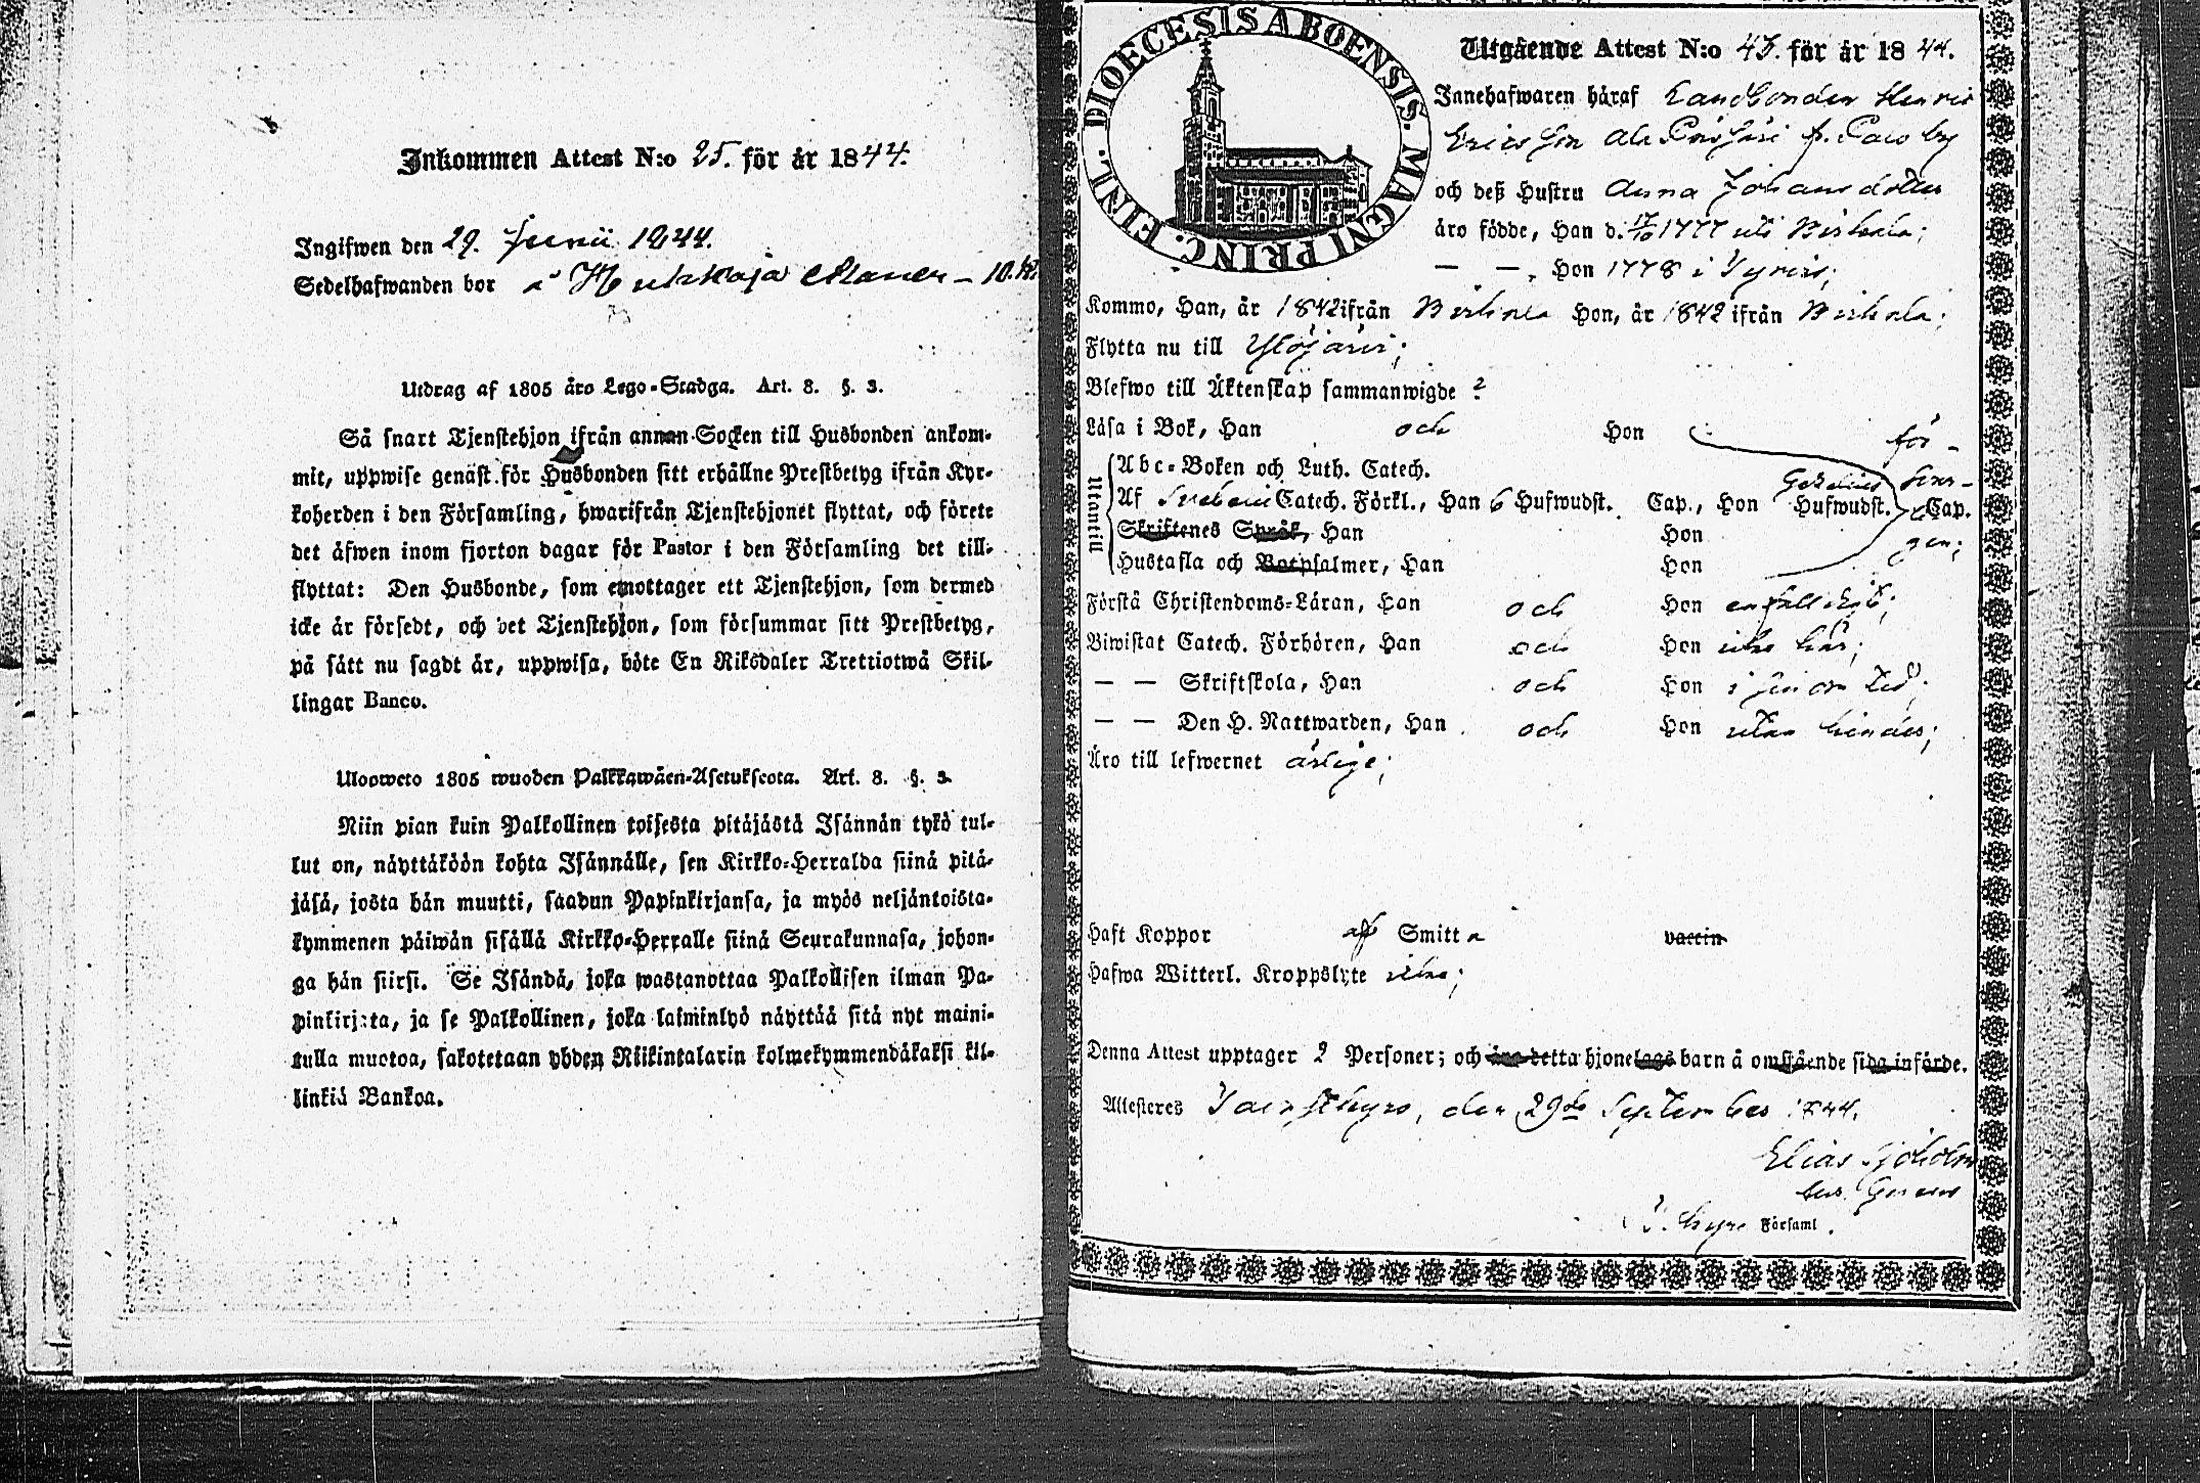 Inkommen Attest N:o 25. för år 1844.
Ingifwen den 29. Junii 1844.
Sedelhafwanden bor å
Utdrag af 1805 års Lego-Stadga. Art. 8. §. 3.
Så snart Tjenstehjon ifrån annan Socken till Husbonden ankom-
mit, uppwise genast för Husbonden sitt erhållne Prestbetyg ifrån Kyr-
koherden i den Församling, hwarifrån Tjenstehjonet flyttat, och förete
det äfwen inom fjorton dagar för Pastor i den Församling det till-
flyttat: Den Husbonde, som emottager ett Tjenstehjon, som dermed
icke är försedt, och det Tjenstehjon, som försummar sitt Prestbetyg,
på sätt nu sagdt är, uppwisa, böte En Riksdaler Trettiotwå Skil-
lingar Banco.
Ulosweto 1805 wuoden Palkkawäen-Asetuksesta. Art. 8. §. 3.
Niin pian kuin Palkollinen toisesta pitäjästä Isännän tykö tul-
lut on, näyttäköön kohta Isännälle, sen Kirkko-Herralda siinä pitä-
jäsä, josta hän muutti, saadun Papinkirjansa, ja myös neljäntoista-
kymmenen päiwän sisällä Kirkko-Herralle siinä Seurakunnasa, johon-
ga hän siirsi. Se Isändä, joka wastanottaa Palkollisen ilman Pa-
pinkirjata, ja se Palkollinen, joka laiminlyö näyttää sitä nyt maini-
tulla muotoa, sakotetaan yhden Riikintalarin kolmekymmendäkaksi kil-
linkiä Bankoa.
DIOECESIS ABOENSIS. MAGNI PRINC. FINL.
Utgående Attest N:o 43. för år 1844.
Innehafwaren häraf Landbonden Henric
Ericsson Ala
och deß Hustru Anna Johansdotter
äro födde, Han d. 17/10 1777 uti Birkala;
— —, Hon 1778 i
Kommo, Han, år 1842 ifrån Birkala Hon, år 1842 ifrån Birkala;
Flytta nu till Ylöjärvi;
Blefwo till Äktenskap sammanwigde ?
Läsa i Bok, Han och Hon
Abc-Boken och Luth. Catech.
Utantill
Af Svebelii Catech. Förkl., Han 6 Hufwudst. Cap., Hon Gezelii Hufwudst. Cap.
Skriftenes Språk, Han Hon
Hustafla och Botpsalmer, Han Hon
Förstå Christendoms-Läran, Han och Hon enfaldigt;
Biwistat Catech. Förhören, Han och Hon icke här;
— — Skriftskola, Han och Hon i sin tid;
— — Den H. Nattwarden, Han och Hon utan hinder;
Äro till lefwernet ärlige;
Haft Koppor af Smitta vaccin
Hafwa Witterl. Kroppslyte icke;
Denna Attest upptager 2 Personer; och äro detta hjonelags barn å omstående sida införde.
Attesteres Tavastkyro, den 29de September 1844.
Elias Sjöholm
T. kyro Församl.